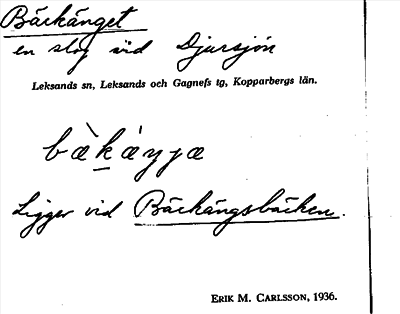 Bäckänget
en slog vid Djursjön
Leksands sn, Leksands och Gagnefs tg, Kopparbergs län.
Ligger vid Bäckängsbäcken.
ERIK M. CARLSSON, 1936.